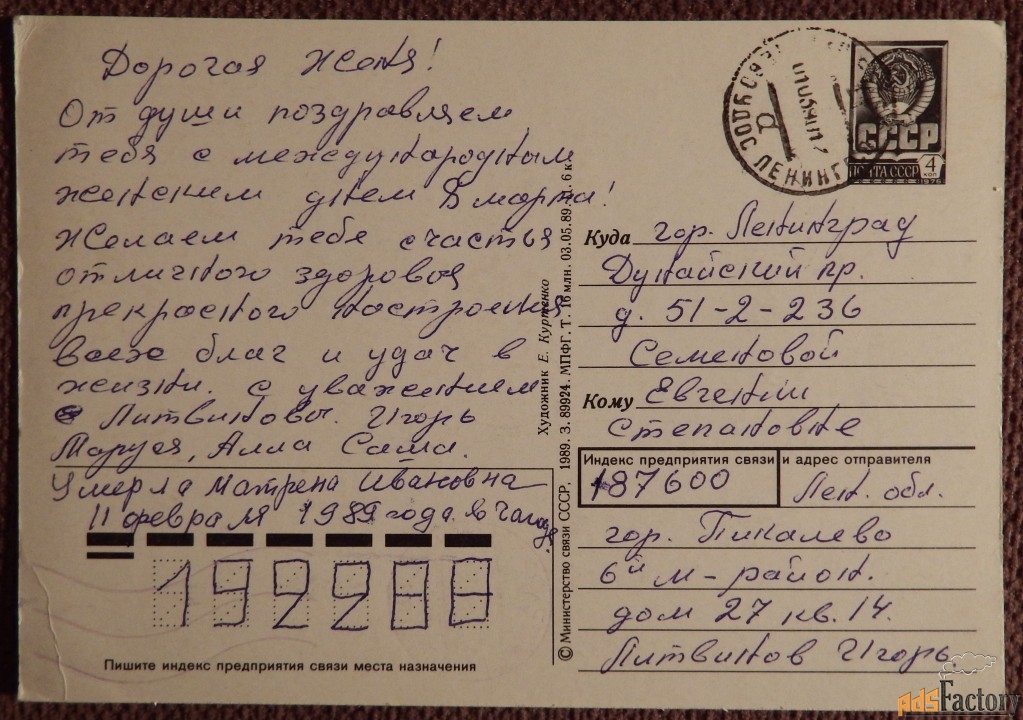 Дорогая Женя!
От души поздравляем
тебя с международным
женским днем 8 марта!
Желаем тебе счастья
отличного здоровья
прекрасного настроения
всех благ и удач в
жизни. с уважением
Литвиновы. Игорь
Маруся, Алла Саша.
Умерла Матрена Ивановна
11 февраля 1989 года. в
192288
Пишите индекс предприятия связи места назначения
Художник Е. Куртенко
© Министерство связи СССР, 1989. З. 89924. МПФГ. Т. 16 млн. 03.05.89 Ц. 6 к.
ЛЕНИНГ
СССР
ПОЧТА СССР
4
КОП
1976
Куда гор. Ленинград
Дунайский пр.
д. 51-2-236
Семеновой
Кому Евгении
Степановне
Индекс предприятия связи и адрес отправителя
187600 Лен. обл.
гор. Пикалево
6й м-район.
дом 27 кв. 14.
Литвинов Игорь.
AdsFactory